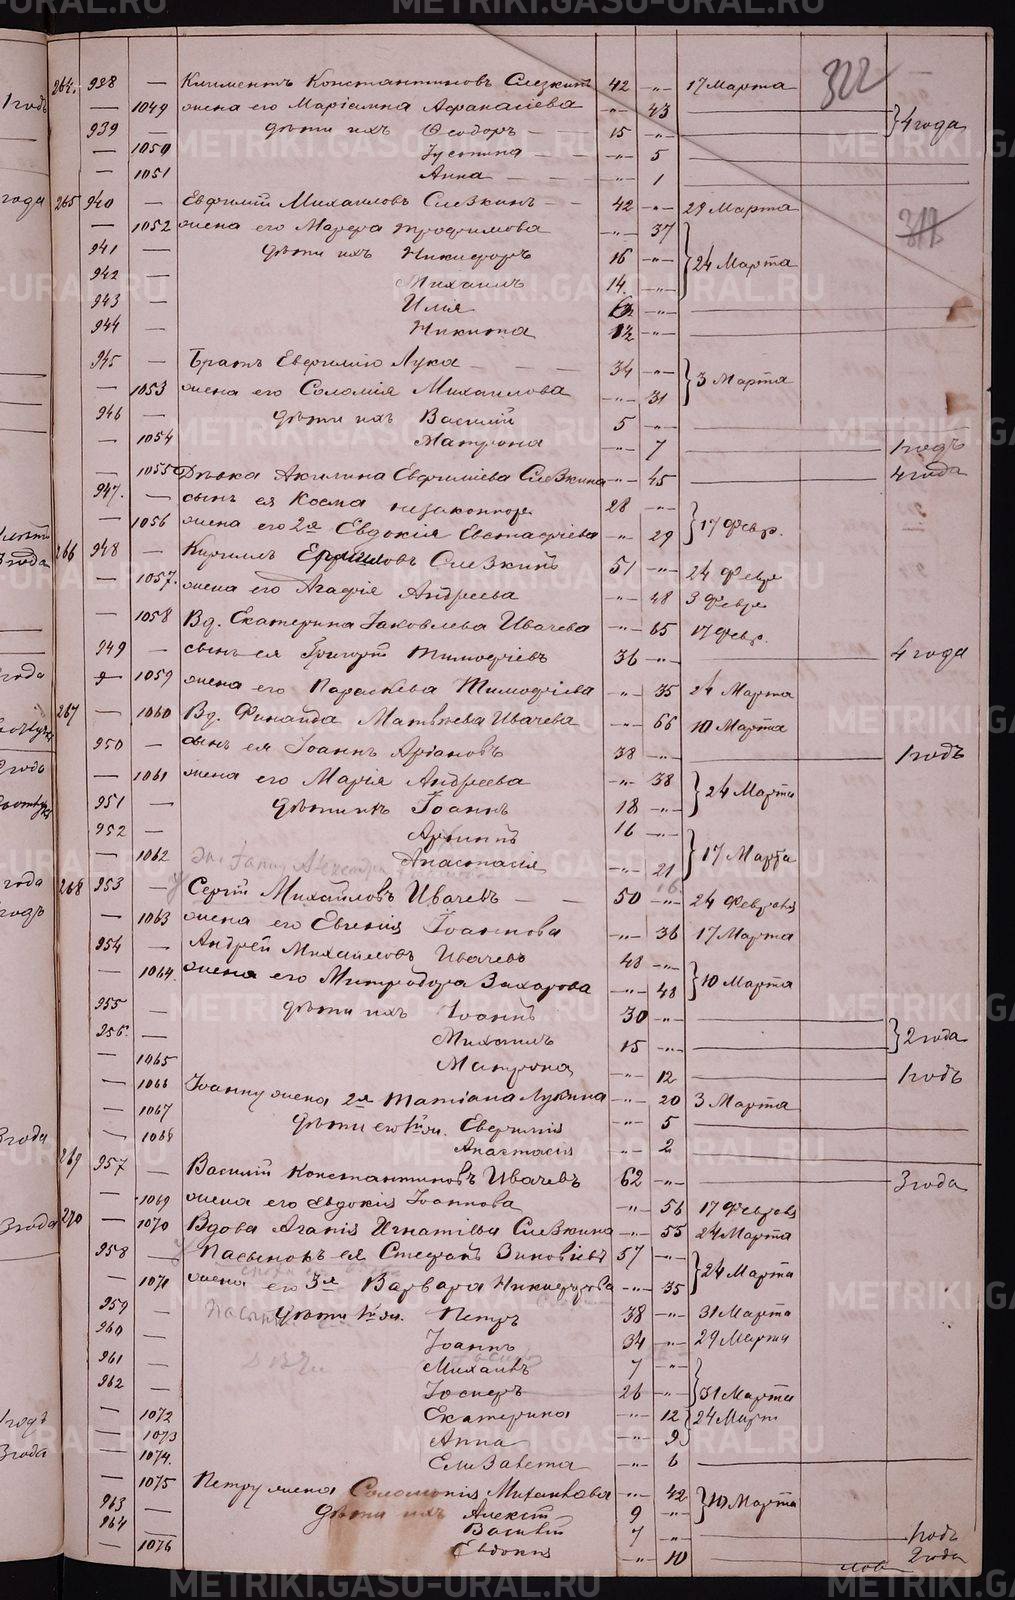 322
264. 938 — Климентъ Константиновъ Слезкинъ 42 -„- 17 Марта
— 1049 жена его Маріамна Афанасіева -„- 43
939 — дѣти ихъ Ѳеодоръ 15 -„- } 4 года
— 1050 Іустина -„- 5
— 1051 Анна -„- 1
265 940 — Евфимій Михаиловъ Слезкинъ 42 -„- 29 Марта
— 1052 жена его Марфа Трофимова -„- 37
941 — дѣти ихъ Никифоръ 16 -„- } 24 Марта
942 — Михаилъ 14 -„-
943 — Илія -„-
944 — Никита 12 -„-
945 — Братъ Евфимію Лука 34 -„- } 3 Марта
— 1053 жена его Соломія Михаилова -„- 31
946 — дѣти ихъ Василій 5 -„-
— 1054 Матрона -„- 7 1 годъ
— 1055 Дѣвка Акилина Евфиміева Слезкина -„- 45 4 года
947. — сынъ ея Косма незаконнор 28 -„-
— 1056 жена его 2я Евдокія Евстафіева -„- 29 } 17 Февр.
266 948 — Кириллъ Слезкинъ 51 -„- 24 Февр
— 1057. жена его Агафія Андреева -„- 48 3 Февр
— 1058 Вд. Екатерина Іаковлева Ивачева -„- 65 17 Февр.
949 — сынъ ея Григорій Тимофіевъ 36 -„- 4 года
1059 жена его Параскева Тимофіева -„- 35 24 Марта
267 — 1060 Вд. Матвѣева Ивачева -„- 66 10 Марта
950 — сынъ ея Іоаннъ 38 -„- 1 годъ
— 1061 жена его Марія Андреева -„- 38
951 — дѣти ихъ Іоаннъ 18 -„- } 24 Марта
952 — 16 -„-
— 1062 Анастасія -„- 21 } 17 Марта
268 953 — Сергій Михайловъ Ивачевъ 50 -„- 24 Февраля
— 1063 жена его Евгенія Іоаннова -„- 36 17 Марта
954 — Андрей Михаиловъ Ивачевъ 48 -„-
— 1064. жена его Митродора Захарова -„- 48 } 10 Марта
955 — дѣти ихъ Іоаннъ 30 -„-
956. — Михаилъ 15 -„- } 2 года
— 1065 Матрона -„- 12 1 годъ
— 1066 Іоанну жена 2я Татіана Лукина -„- 20 3 Марта
1067 дѣти его 1й ж. Евфимія -„- 5
1068 Анастасія -„- 2
269 957 — Василій Константиновъ Ивачевъ 62 -„- 3 года
— 1069 жена его Евдокія Іоаннова -„- 56 17 Февраля
270 — 1070 Вдова Агапія Игнатіева Слезкина -„- 55 24 Марта
958 — Пасынокъ ея Стефанъ Зиновіевъ 57 -„-
— 1071 жена его 3я Варвара Никифорова -„- 35 } 24 Марта
959 — дѣти 1й ж. Петръ 38 -„- 31 Марта
960 — Іоаннъ 34 -„- 29 Марта
961 — Михаилъ 7 -„-
962 — Іосифъ 26 -„- } 31 Марта
— 1072 Екатерина -„- 12 } 24 Март
— 1073 Анна -„- 9
— 1074. Елизавета -„- 6
— 1075 Петру жена Соломонія Михаилова -„- 42
963 — дѣти ихъ Алексій 9 -„- } 10 Марта
964 — Василій 7 -„- 1 годъ
— 1076 Евдокія -„- 10 2 года
METRIKI.GASO-URAL.RU